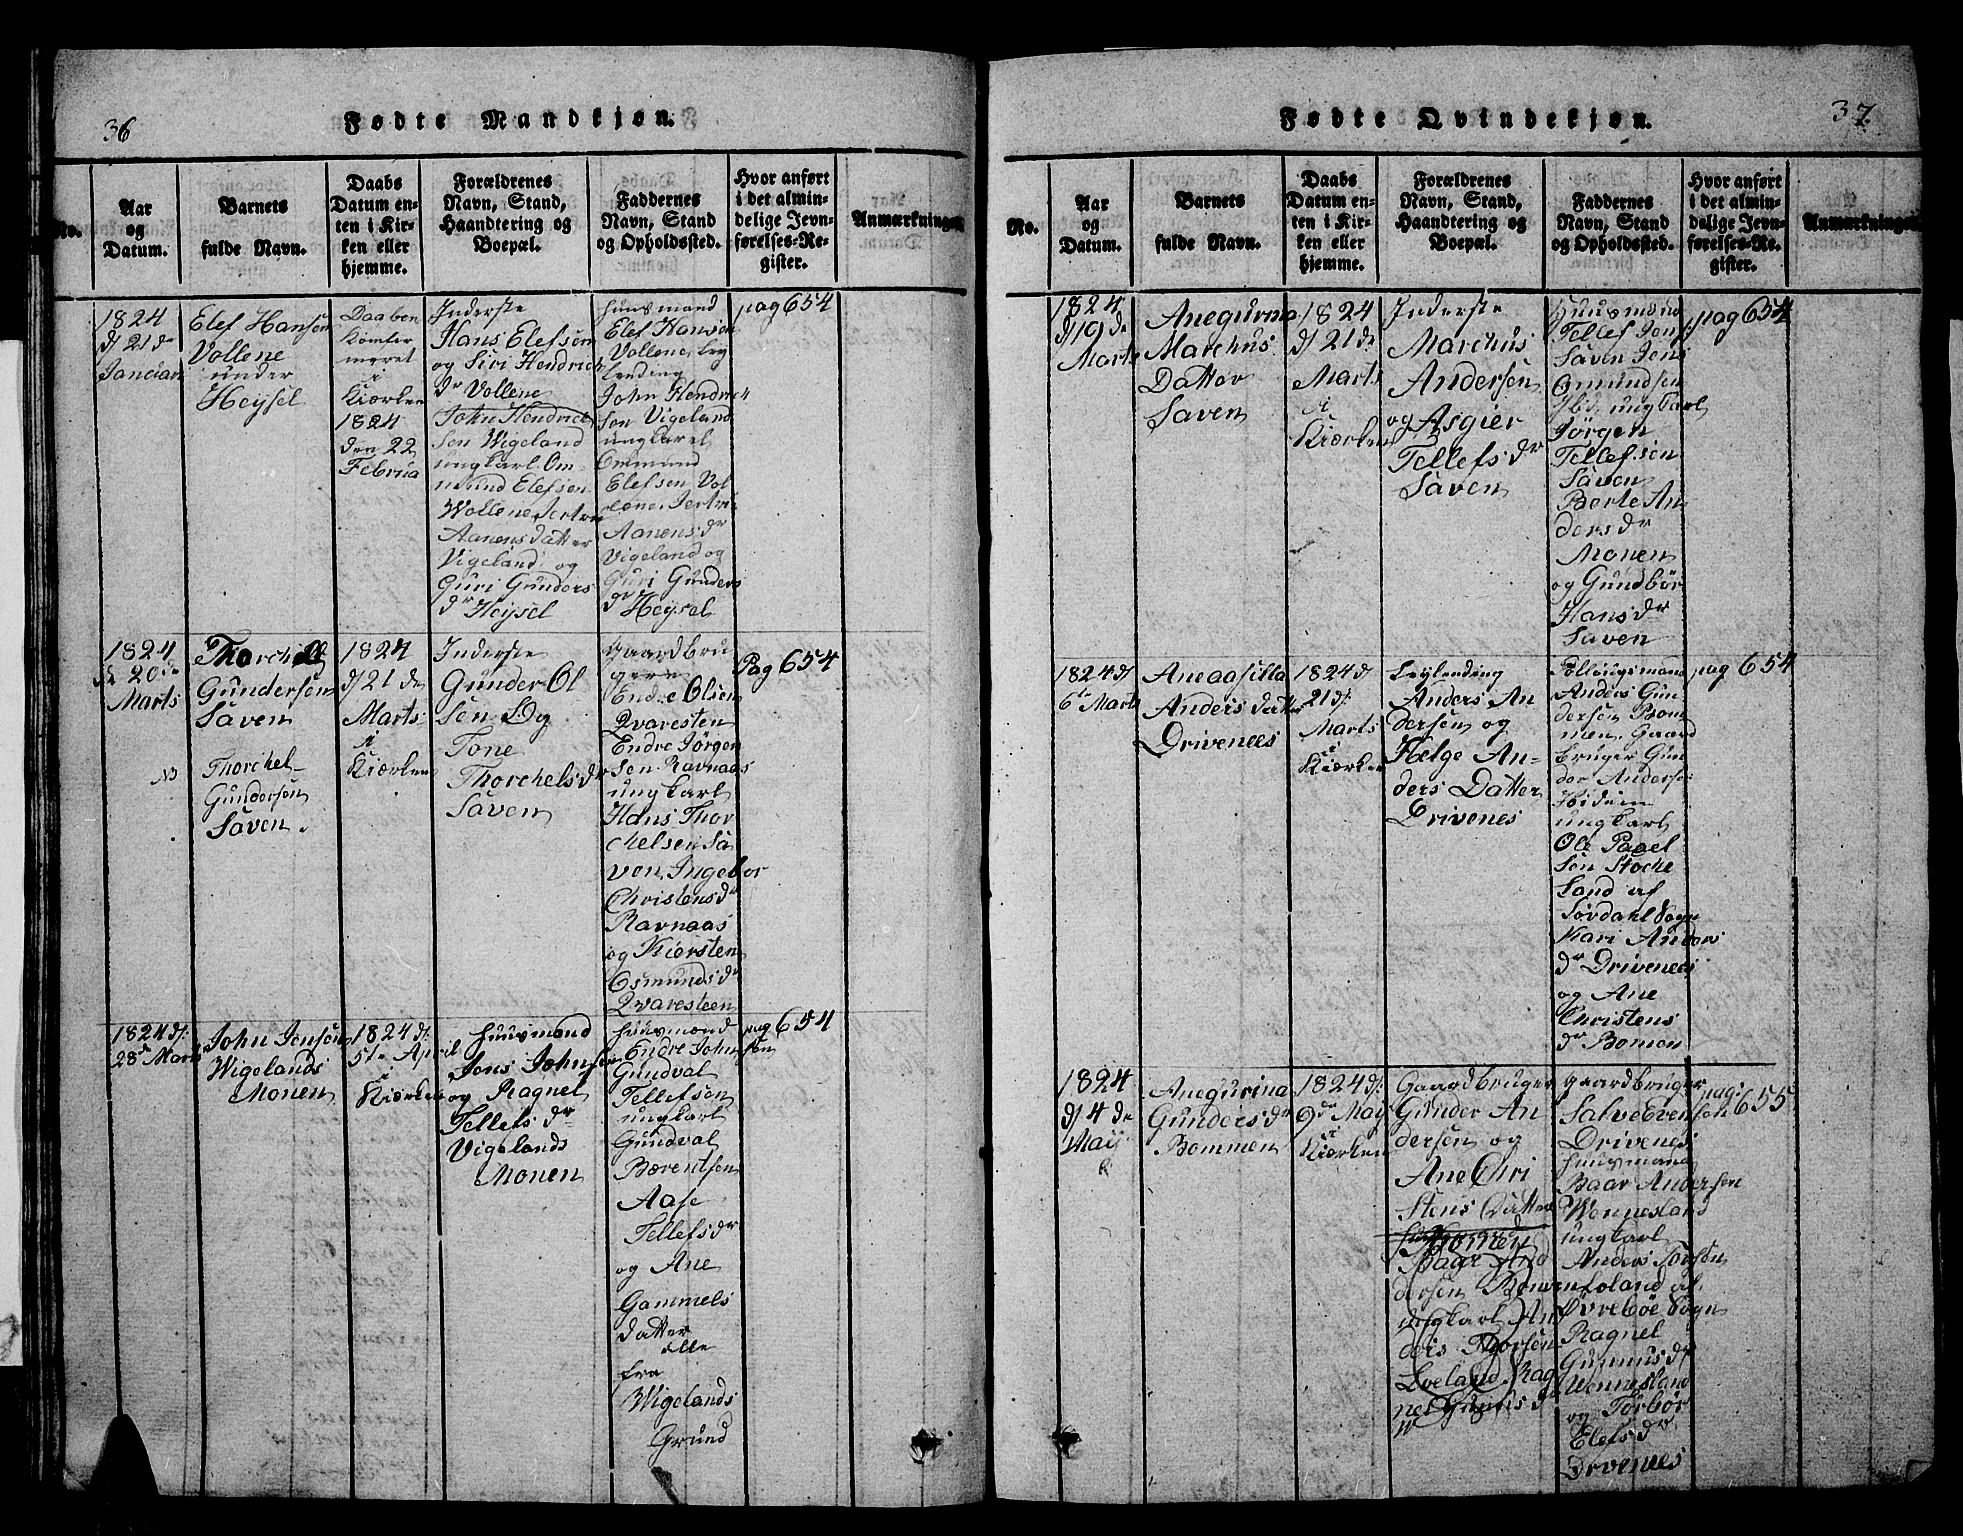 36
Fødte Mandkjøn.
No.
Aar
og
Datum.
Barnets
fulde Navn.
Daabs
Datum en-
ten i Kir-
ken eller
hjemme.
Forældrenes
Navn, Stand,
Haandtering og
Boepæl.
Faddernes
Navn, Stand
og Opholdssted.
Hvor anført
i det almin-
delige Jevn-
førelses-Re-
gister.
Anmærkninger
1824
d 21 de
Januar
Elef Hansen
Vollene
under
Heysel
Daaben
Komfer
meret
i
Kiørken
1824
den 22
Februa
Inderste
Hans Elefsen
og Siri Hendrich
dr Vollene
John Hendrich
sen Wigeland
ungkarl Om-
mund Elefsen
Wollene Jertru
Aanensdatter
Vigeland og
Guri Gunders
dr Heysel
huusmand
Elef Hansen
Vollene, Ley
lending
John Hendrich
sen Vigeland
ungkarel
Ommund
Elefsen Vol
lene, Jertru
Aanens dr
Vigeland og
Guri Gunders
dr Heysel
pag 654
1824
d 20 de
Marts
Thorchell
Gundersen
Saven
Thorchel
Gundersen
Saven
1824
d 21 de
Marts
i
Kiørken
Inderste
Gunder Ol
sen Og
Tone
Thorchels dr
Saven
gaardbru
gere
Endre Olsen
Qvaresten
Endre Jørgen
sen Ravnaas
ungkarl
Hans Thor
chelsen Sa
ven, Ingebor
Christens dr
Ravnaas
og Kiersten
Osmunds dr
Qvaresteen
Pag 654
1824 d:
28de Marts
John Jensen
Wigelands
Monen
1824 d:
5te April
i
Kiørken
huusmand
Jens Johnsen
og Ragnel
Tellefs dr
Vigelands
Monen
huusmand
Endre John
sen
Gundval
Tellefsen
ungkarl
Gundval
Bærentsen
Aase
Tellefs dr
og Ane
Gammels
datter
alle
fra
Wigelands
Grund
pag 654
37
Fødte Qvindekjøn.
No.
Aar
og
Datum.
Barnets
fulde Navn.
Daabs
Datum en-
ten i Kir-
ken eller
hjemme.
Forældrenes
Navn, Stand,
Haandtering og
Boepæl.
Faddernes
Navn, Stand
og Opholdssted.
Hvor anført
i det almin-
delige Jevn-
førelses-Re-
gister.
Anmærkninger
1824
d 19 de
Marts
Anegurina
Marchus
Dattor
Saven
1824
d 21 de
Marts
i
Kiørken
Inderste
Marchus
Andersen
og Asgier
Tellefs dr
Saven
Huusmand
Tellef Jens
Saven Jens
Omundsen
Ibid, ungkarl
Jørgen
Tellefsen
Saven
Berte An
ders dr
Monen
og Gundbør
Hans dr
Saven
pag 654
1824 d
6te Marts
Aneaasilla
Anders datter
Drivenees
1824 d
21 d:
Marts
i
Kiørken
Leylending
Anders An
dersen og
Helge An-
ders Datter
Drivenes
Anders Gun
dersen Bom
men, Gaard
bruger Gun
der Andersen
Ibidem
ungkarl
Ole Paael
sen Stoche
land af
Søvdahl Sogn
Kari Anders
dr Drivenees
og Ane
Christens
dr Bomen
pag 654
1824
d 4 de
Maij
Anegurina
Gunders dr
Bommen
1824 d:
9de Maij
i
Kiørken
Gaardbruger
Gunder An
dersen og
Ane Chri
stens Datter
Bomen
Baar And
dersen Bomen
ungkarl An
ders Thorsen
Loeland Rag
nel Gunus d
gaardbruger
Salve Evensen
Drivenes
huusmand
Baar Andersen
Wennesland
ungkarl
Anders Torsen
Loland af
Øvrebøe Sogn
Ragnel
Gunnus dr
Wennesland
og Torbør
Elefs dr
Drvenees
pag:
655